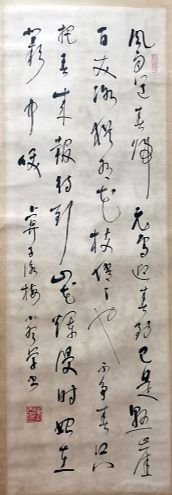 風雨送春歸 飛雪迎春到 已是懸崖
百丈冰 猶有花枝俏 俏也不争春 只
把春来報 待到山花爛漫時 她在
叢中笑 卜算子詠梅